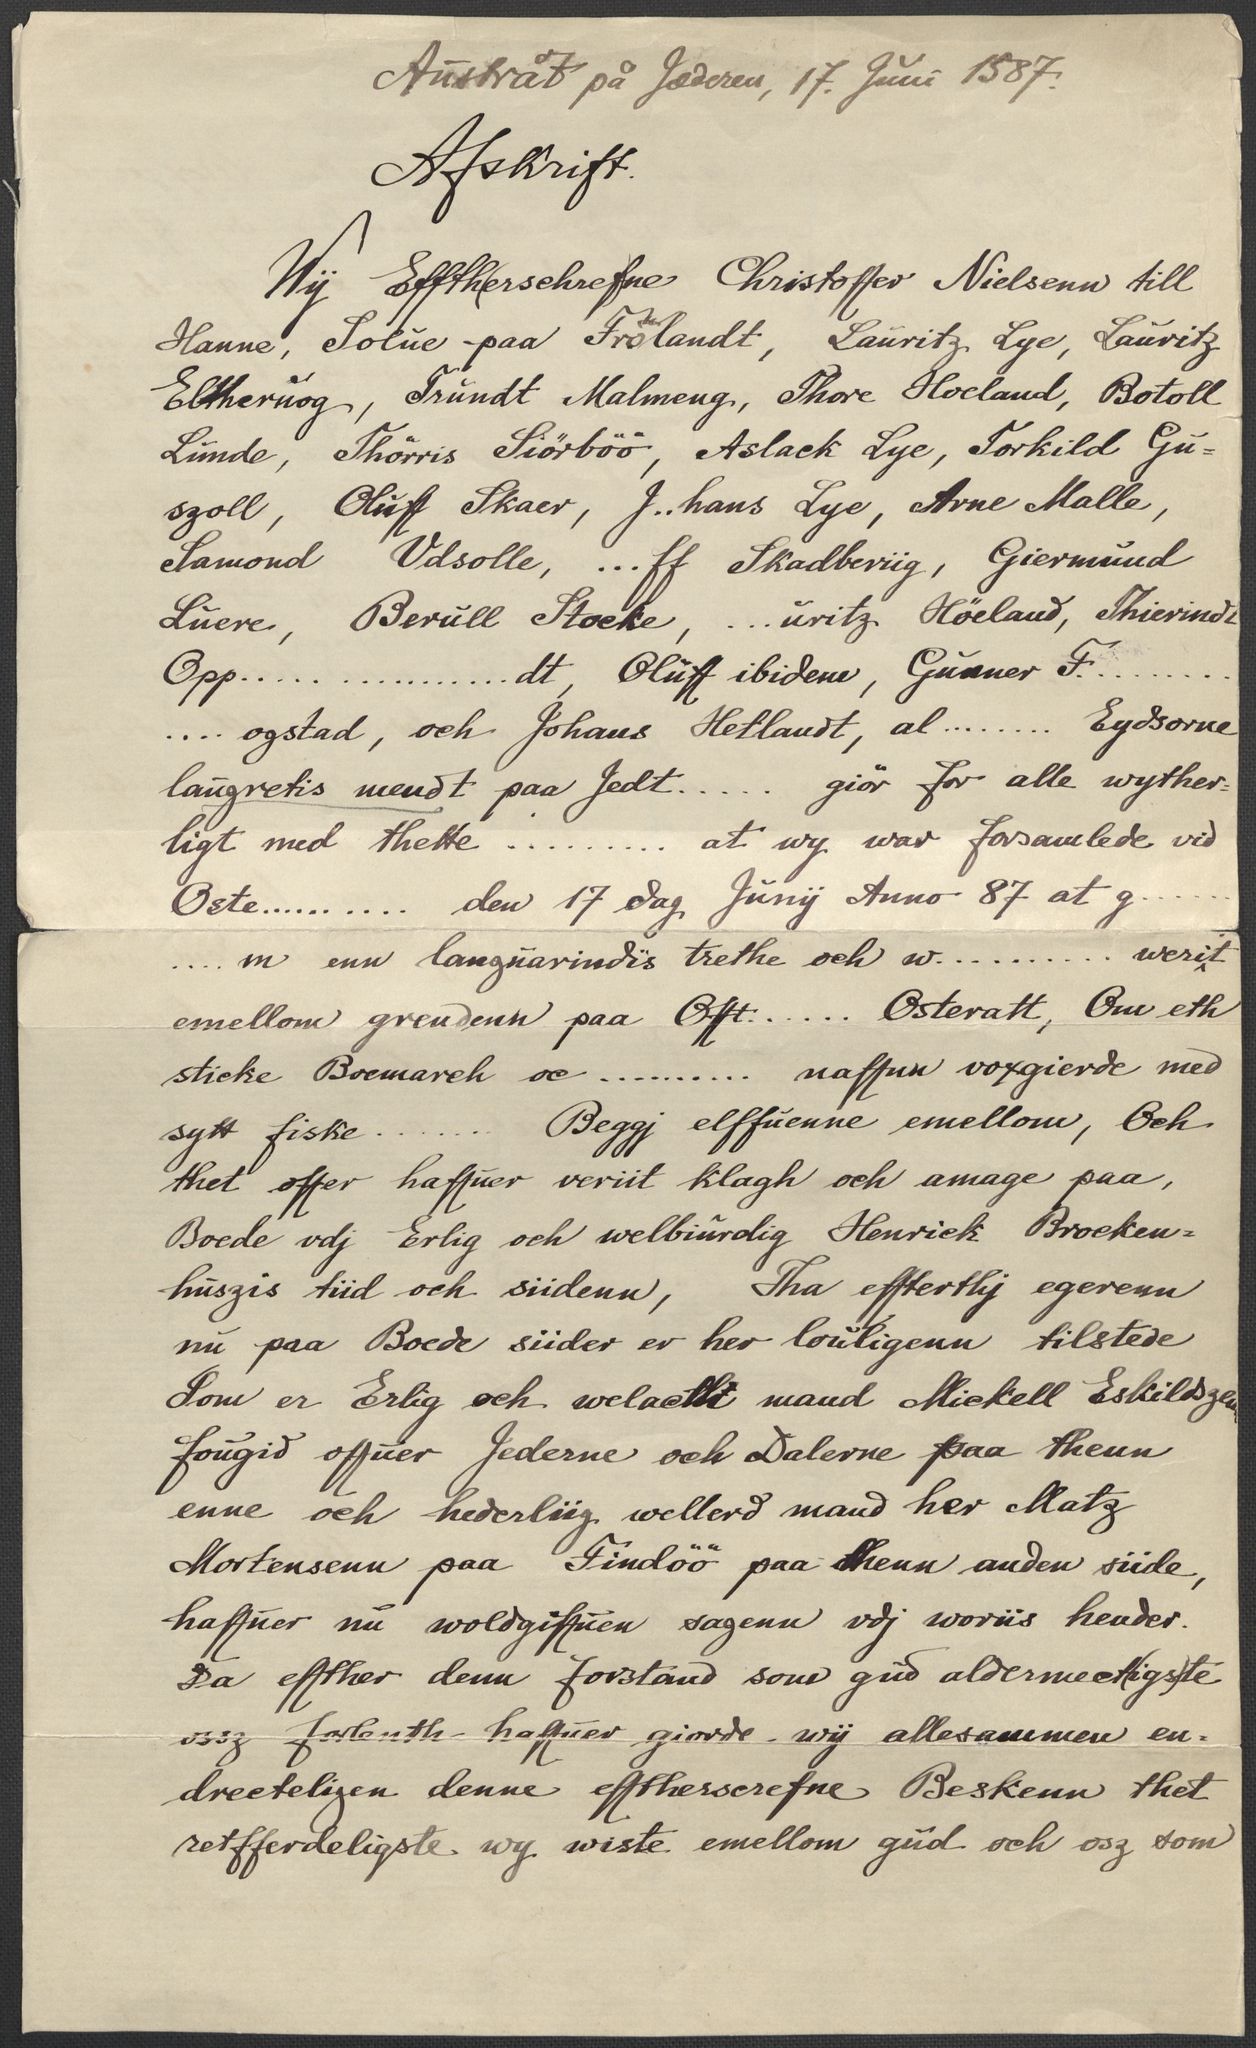 Austråt på Jæderen, 17. Juni 1587.
Afskrift.
Wij Effth(erschrefne Christoffer Nielsenn till
Hanne, Solue paa Frölandt, Lauritz Lye, Lauritz
Eltheruog, Trundt Malmeng, Thore Hoeland, Botoll
Lunde, Thörris Siörböö, Aslack Lye, Torkild Gu=
szoll, Oluff Skaer, J..hans Lye, Arne Malle,
Samond Vdsolle, ...ff Skadberiig, Giermund
Luere, Berull Stocke, ...uritz Höeland, Thierindt
Opp..... ..................dt, Oluff ibidem, Gunner F.........
.... ogstad, och Johans Hetlandt, al........ Eydsorne
laugretis mendt paa Jedt...... giör for alle wyther=
ligt med thette .......... at wy war forsamlede vid
Oste........... den 17 dag Junij Anno 87 at g......
....m enn languarindis trethe och w........... werit
emellom grendenn paa Offt...... Osteratt, Om eth
sticke Boemarch oc .......... naffnn voxgierde med
sytt fiske ....... Beggj elffuenne emellom, Och
thet offer haffuer veriit klagh och amage paa,
Boede vdj Erlig och welbiurdig Henrick Brocken=
huszis tiid och siidenn, Tha effterthij egerenn
nu paa Boede siider er her louligenn tilstede
Som er Erlig och welacht mand Mickell Eskildszen
fougid offuer Jederne och Dalerne paa thenn
enne och hederliig wellerd mand her Matz
Mortensenn paa Findöö paa thenn anden siide,
haffuer nu woldgiffuen sagenn vdj woriis hender.
Da effther denn forstand som gud aldermect(igs)te
ossz forlenth haffuer giorde wij allesammen en=
drectelizen denne efftherscrefne Beskenn thet
retfferdeligste wy wiste emellom gud och osz som